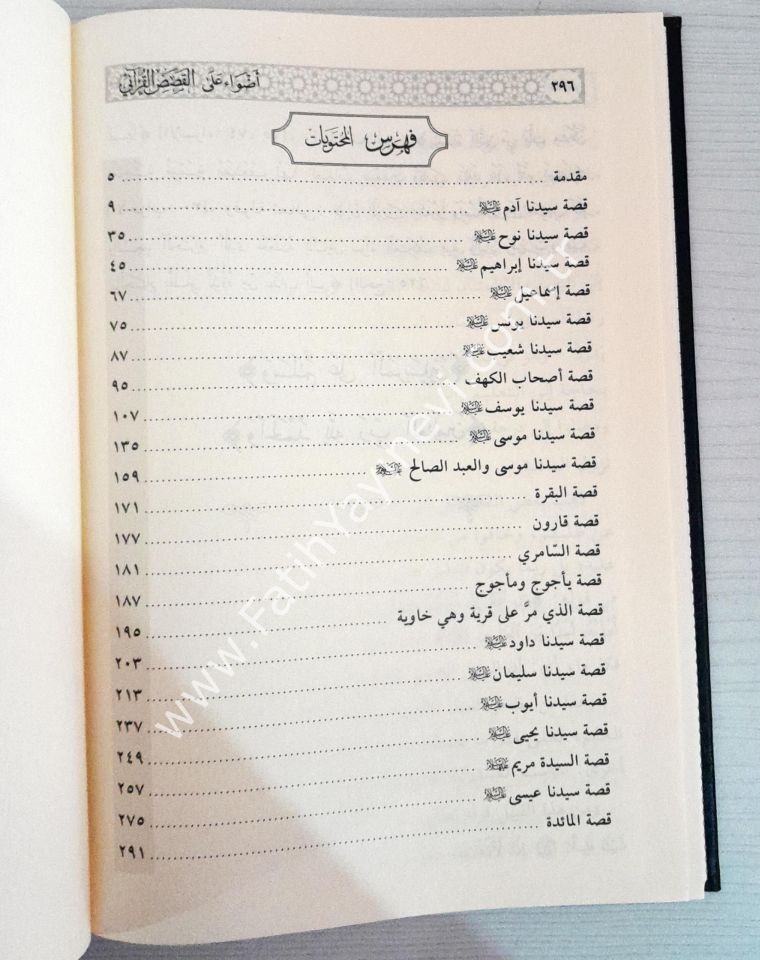 ٢٩٦ أضواء على القصص القرآني
فهرس المحتويات
مقدمة ٥
قصة سيدنا آدم عليه السلام ٩
قصة سيدنا نوح عليه السلام ٣٥
قصة سيدنا إبراهيم عليه السلام ٤٥
قصة إسماعيل عليه السلام ٦٧
قصة سيدنا يونس عليه السلام ٧٥
قصة سيدنا شعيب عليه السلام ٨٧
قصة أصحاب الكهف ٩٥
قصة سيدنا يوسف عليه السلام ١٠٧
قصة سيدنا موسى عليه السلام ١٣٥
قصة سيدنا موسى والعبد الصالح عليه السلام ١٥٩
قصة البقرة ١٧١
قصة قارون ١٧٧
قصة السّامري ١٨١
قصة يأجوج ومأجوج ١٨٧
قصة الذي مرَّ على قرية وهي خاوية ١٩٥
قصة سيدنا داود عليه السلام ٢٠٣
قصة سيدنا سليمان عليه السلام ٢١٣
قصة سيدنا أيوب عليه السلام ٢٣٧
قصة سيدنا يحيى عليه السلام ٢٤٩
قصة السيدة مريم عليها السلام ٢٥٧
قصة سيدنا عيسى عليه السلام ٢٧٥
قصة المائدة ٢٩١
www.FatihYayinevi.com.tr